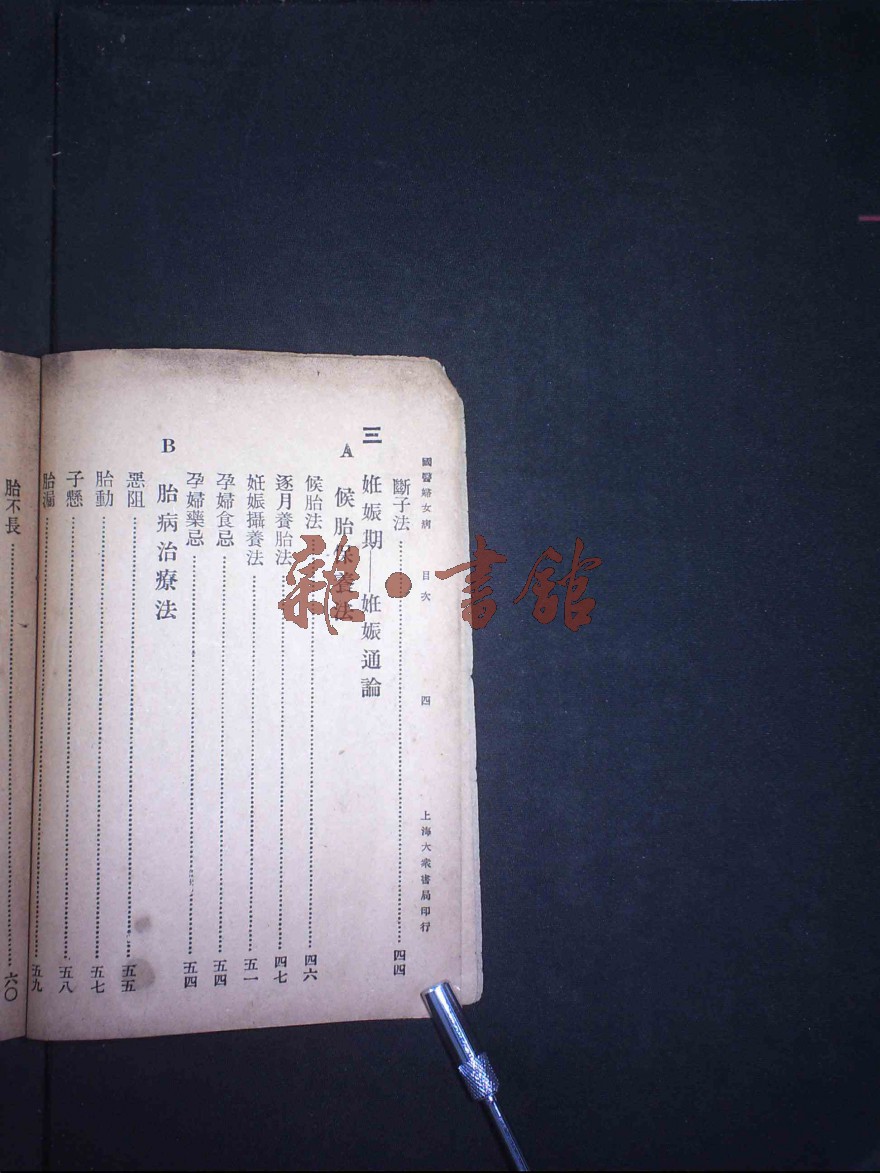 國醫婦女病 目次 四 上海大衆書局印行
斷子法……四四
三 姙娠期——姙娠通論
A 候胎保養法
候胎法……四六
逐月養胎法……四七
姙娠攝養法……五一
孕婦食忌……五四
孕婦藥忌……五四
B 胎病治療法
惡阻……五五
胎動……五七
子懸……五八
胎漏……五九
胎不長……六〇
雜·書館